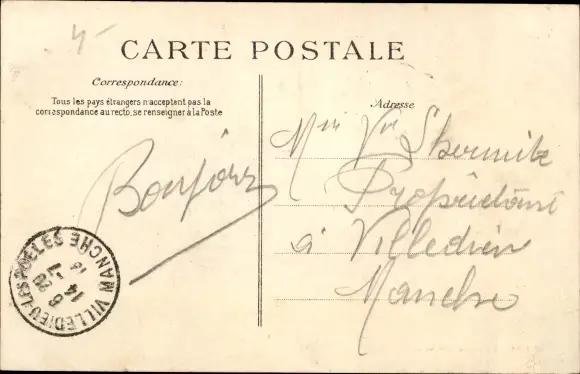 4-
CARTE POSTALE
Correspondance:
Tous les pays étrangers n'acceptent pas la
correspondance au recto, se renseigner à la Poste
Adresse
Bonjour
Mme Vve Lhermite
Propriétaire
à Villedieu
Manche
VILLEDIEU-LES-POELES MANCHE
14